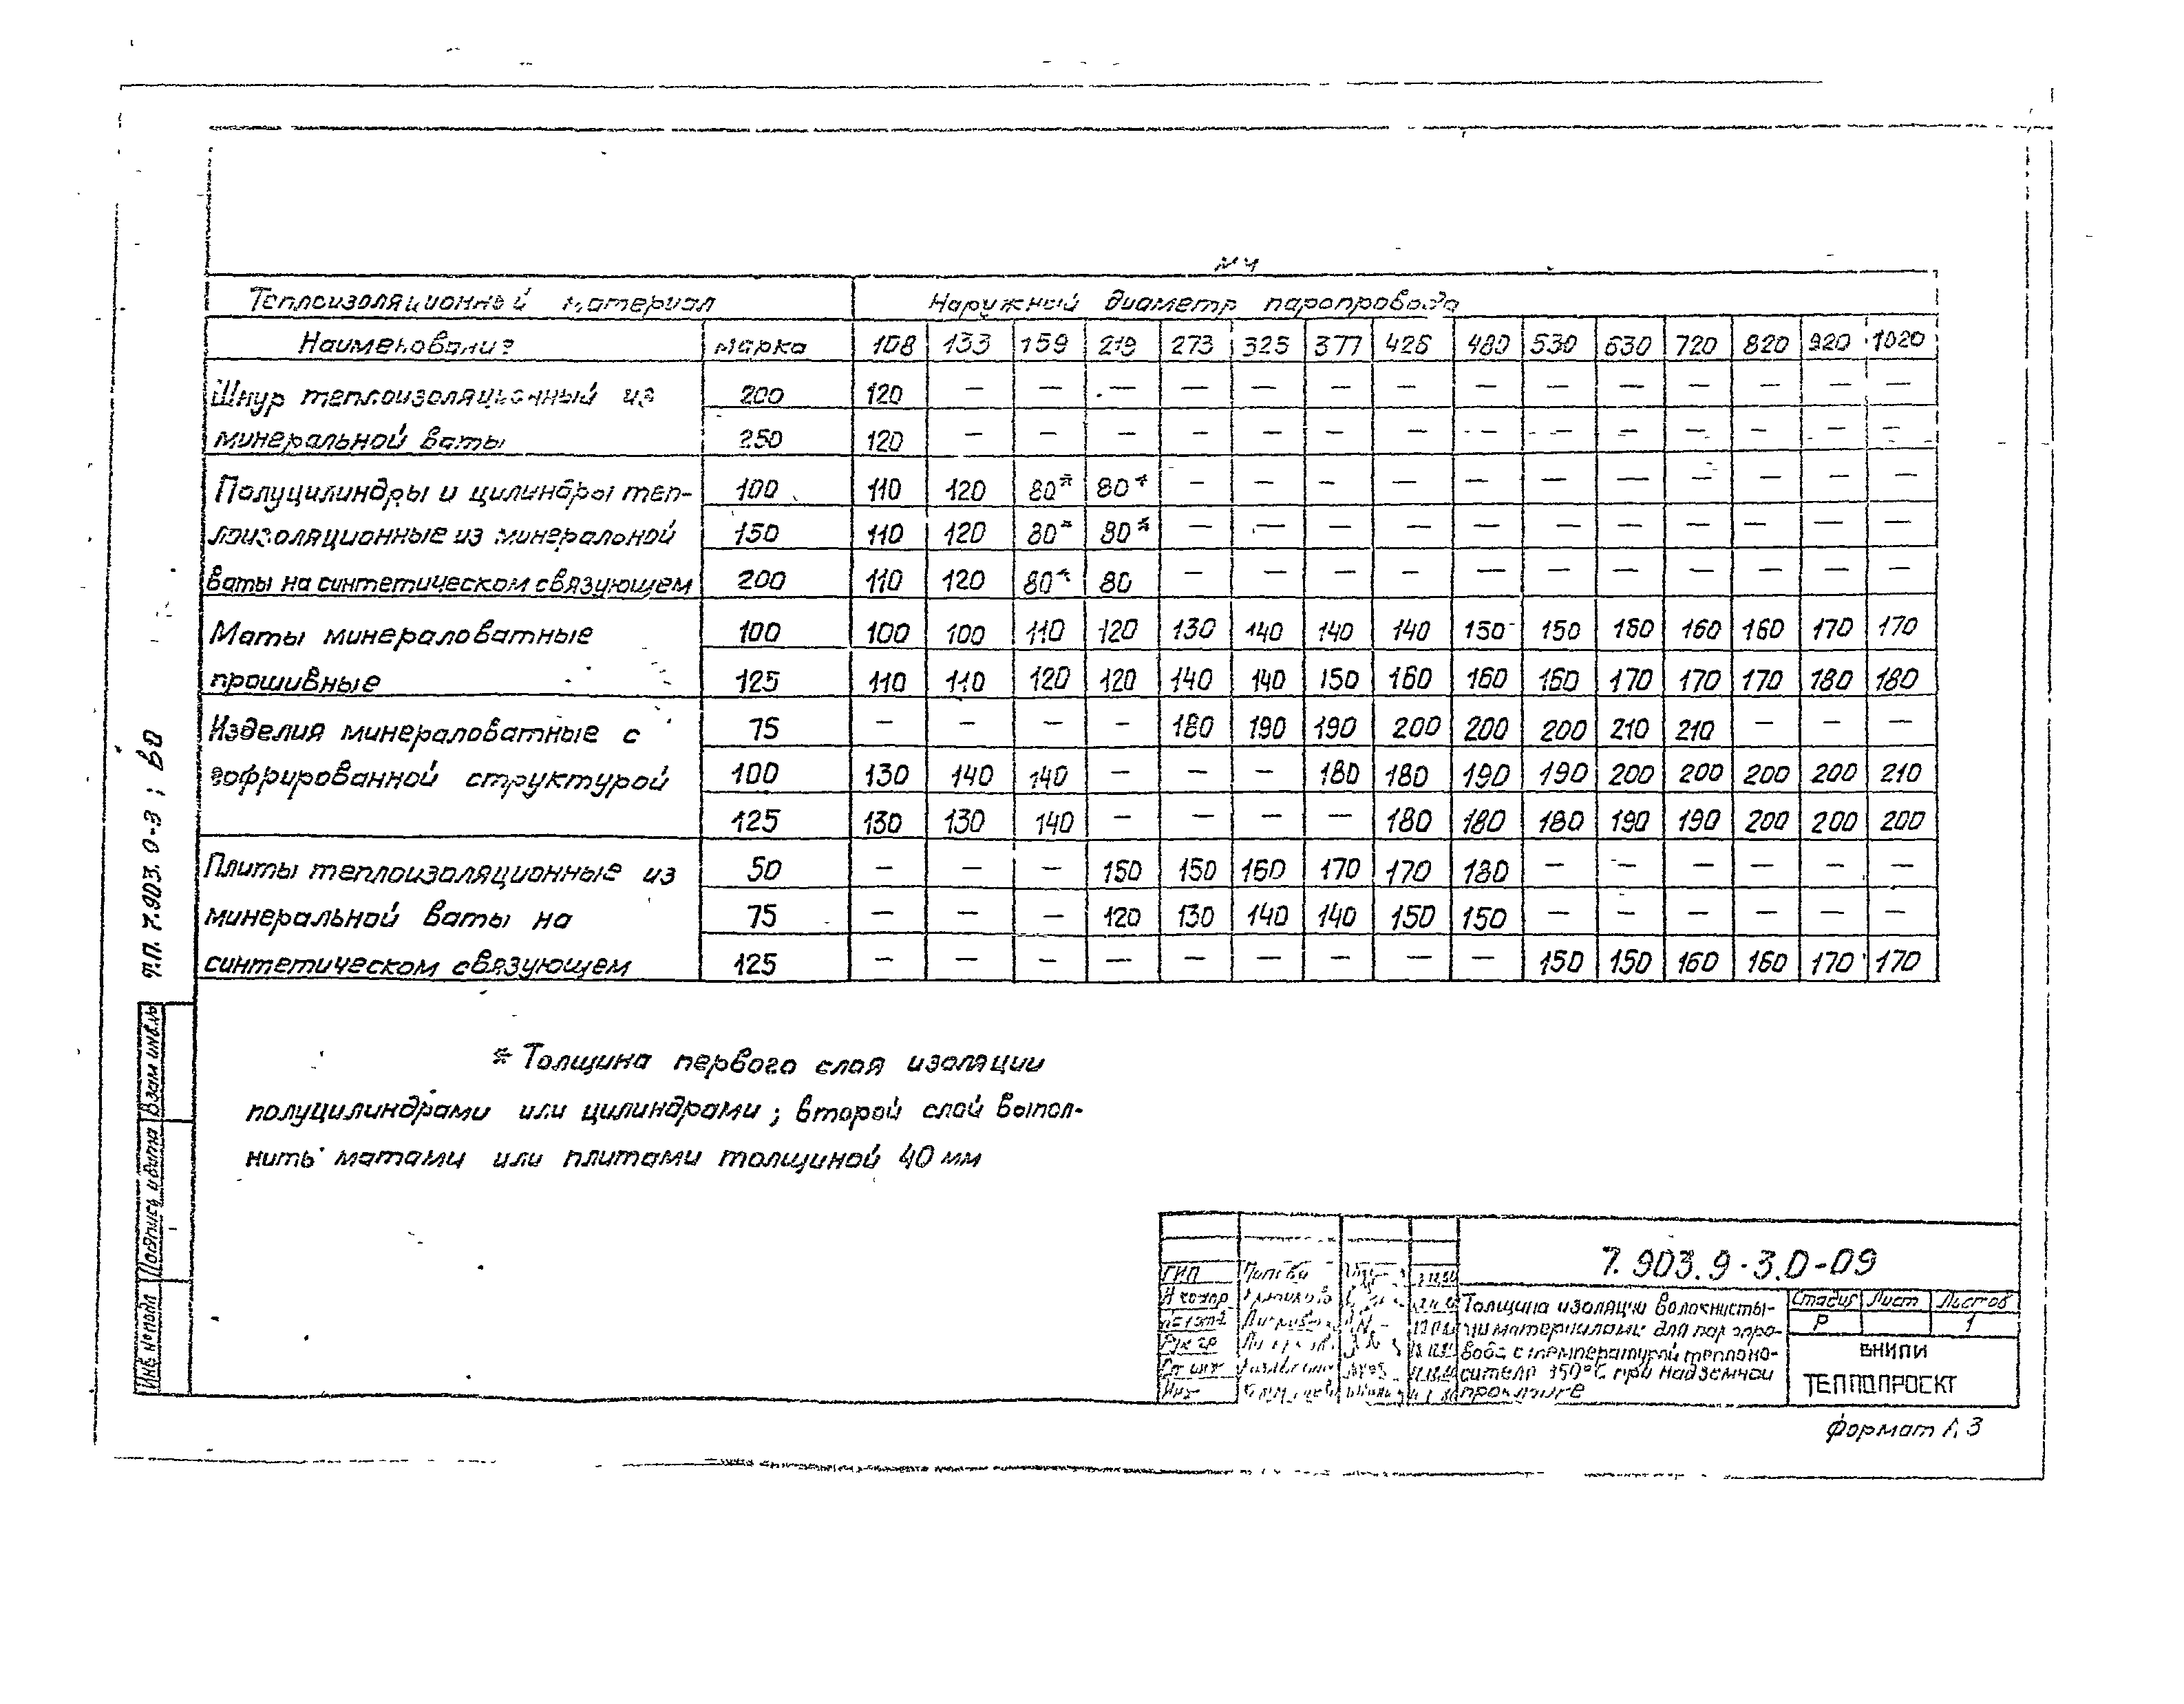 мм
Теплоизоляционный материал Наружный диаметр паропровода
Наименование марка 108 133 159 219 273 325 377 426 480 530 630 720 820 920 1020
Шнур теплоизоляционный из 200 120 — — — — — — — — — — — — — —
минеральной ваты 250 120 — — — — — — — — — — — — — —
Полуцилиндры и цилиндры теп- 100 110 120 80* 80* — — — — — — — — — — —
лоизоляционные из минеральной 150 110 120 80* 80* — — — — — — — — — — —
ваты на синтетическом связующем 200 110 120 80* 80 — — — — — — — — — — —
Маты минераловатные 100 100 100 110 120 130 140 140 140 150 150 160 160 160 170 170
прошивные 125 110 110 120 120 140 140 150 160 160 160 170 170 170 180 180
Изделия минераловатные с 75 — — — — 180 190 190 200 200 200 210 210 — — —
гофрированной структурой 100 130 140 140 — — — 180 180 190 190 200 200 200 200 210
125 130 130 140 — — — — 180 180 180 190 190 200 200 200
Плиты теплоизоляционные из 50 — — — 150 150 160 170 170 180 — — — — — —
минеральной ваты на 75 — — — 120 130 140 140 150 150 — — — — — —
синтетическом связующем 125 — — — — — — — — — 150 150 160 160 170 170
* Толщина первого слоя изоляции
полуцилиндрами или цилиндрами; второй слой выпол-
нить матами или плитами толщиной 40 мм
Т.П. 7.903.0-3; В0
Взам инв.№
Подпись и дата
Инв. № подл
7.903.9-3.0-09
ГИП
Н контр
Рук гр
Ст инж
Инж
Толщина изоляции волокнисты-
ми материалами для паропро-
вода с температурой теплоно-
сителя 350°С при надземной
прокладке
Стадия Лист Листов
Р 1
ВНИПИ
ТЕПЛОПРОЕКТ
Формат А3